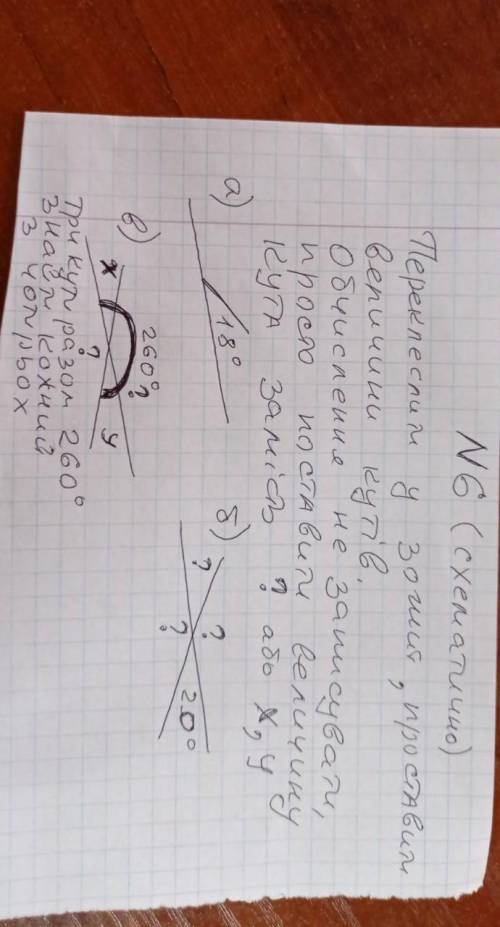 N6 (схематично)
Перекреслити у зошит, проставити
величини кутів.
Обчислення не записувати,
просто поставити величину
кута замість ? або x, y
а)
18°
б)
?
?
?
20°
в)
260°
?
x
y
?
Три кути разом 260°
знайти кожний
з чотирьох